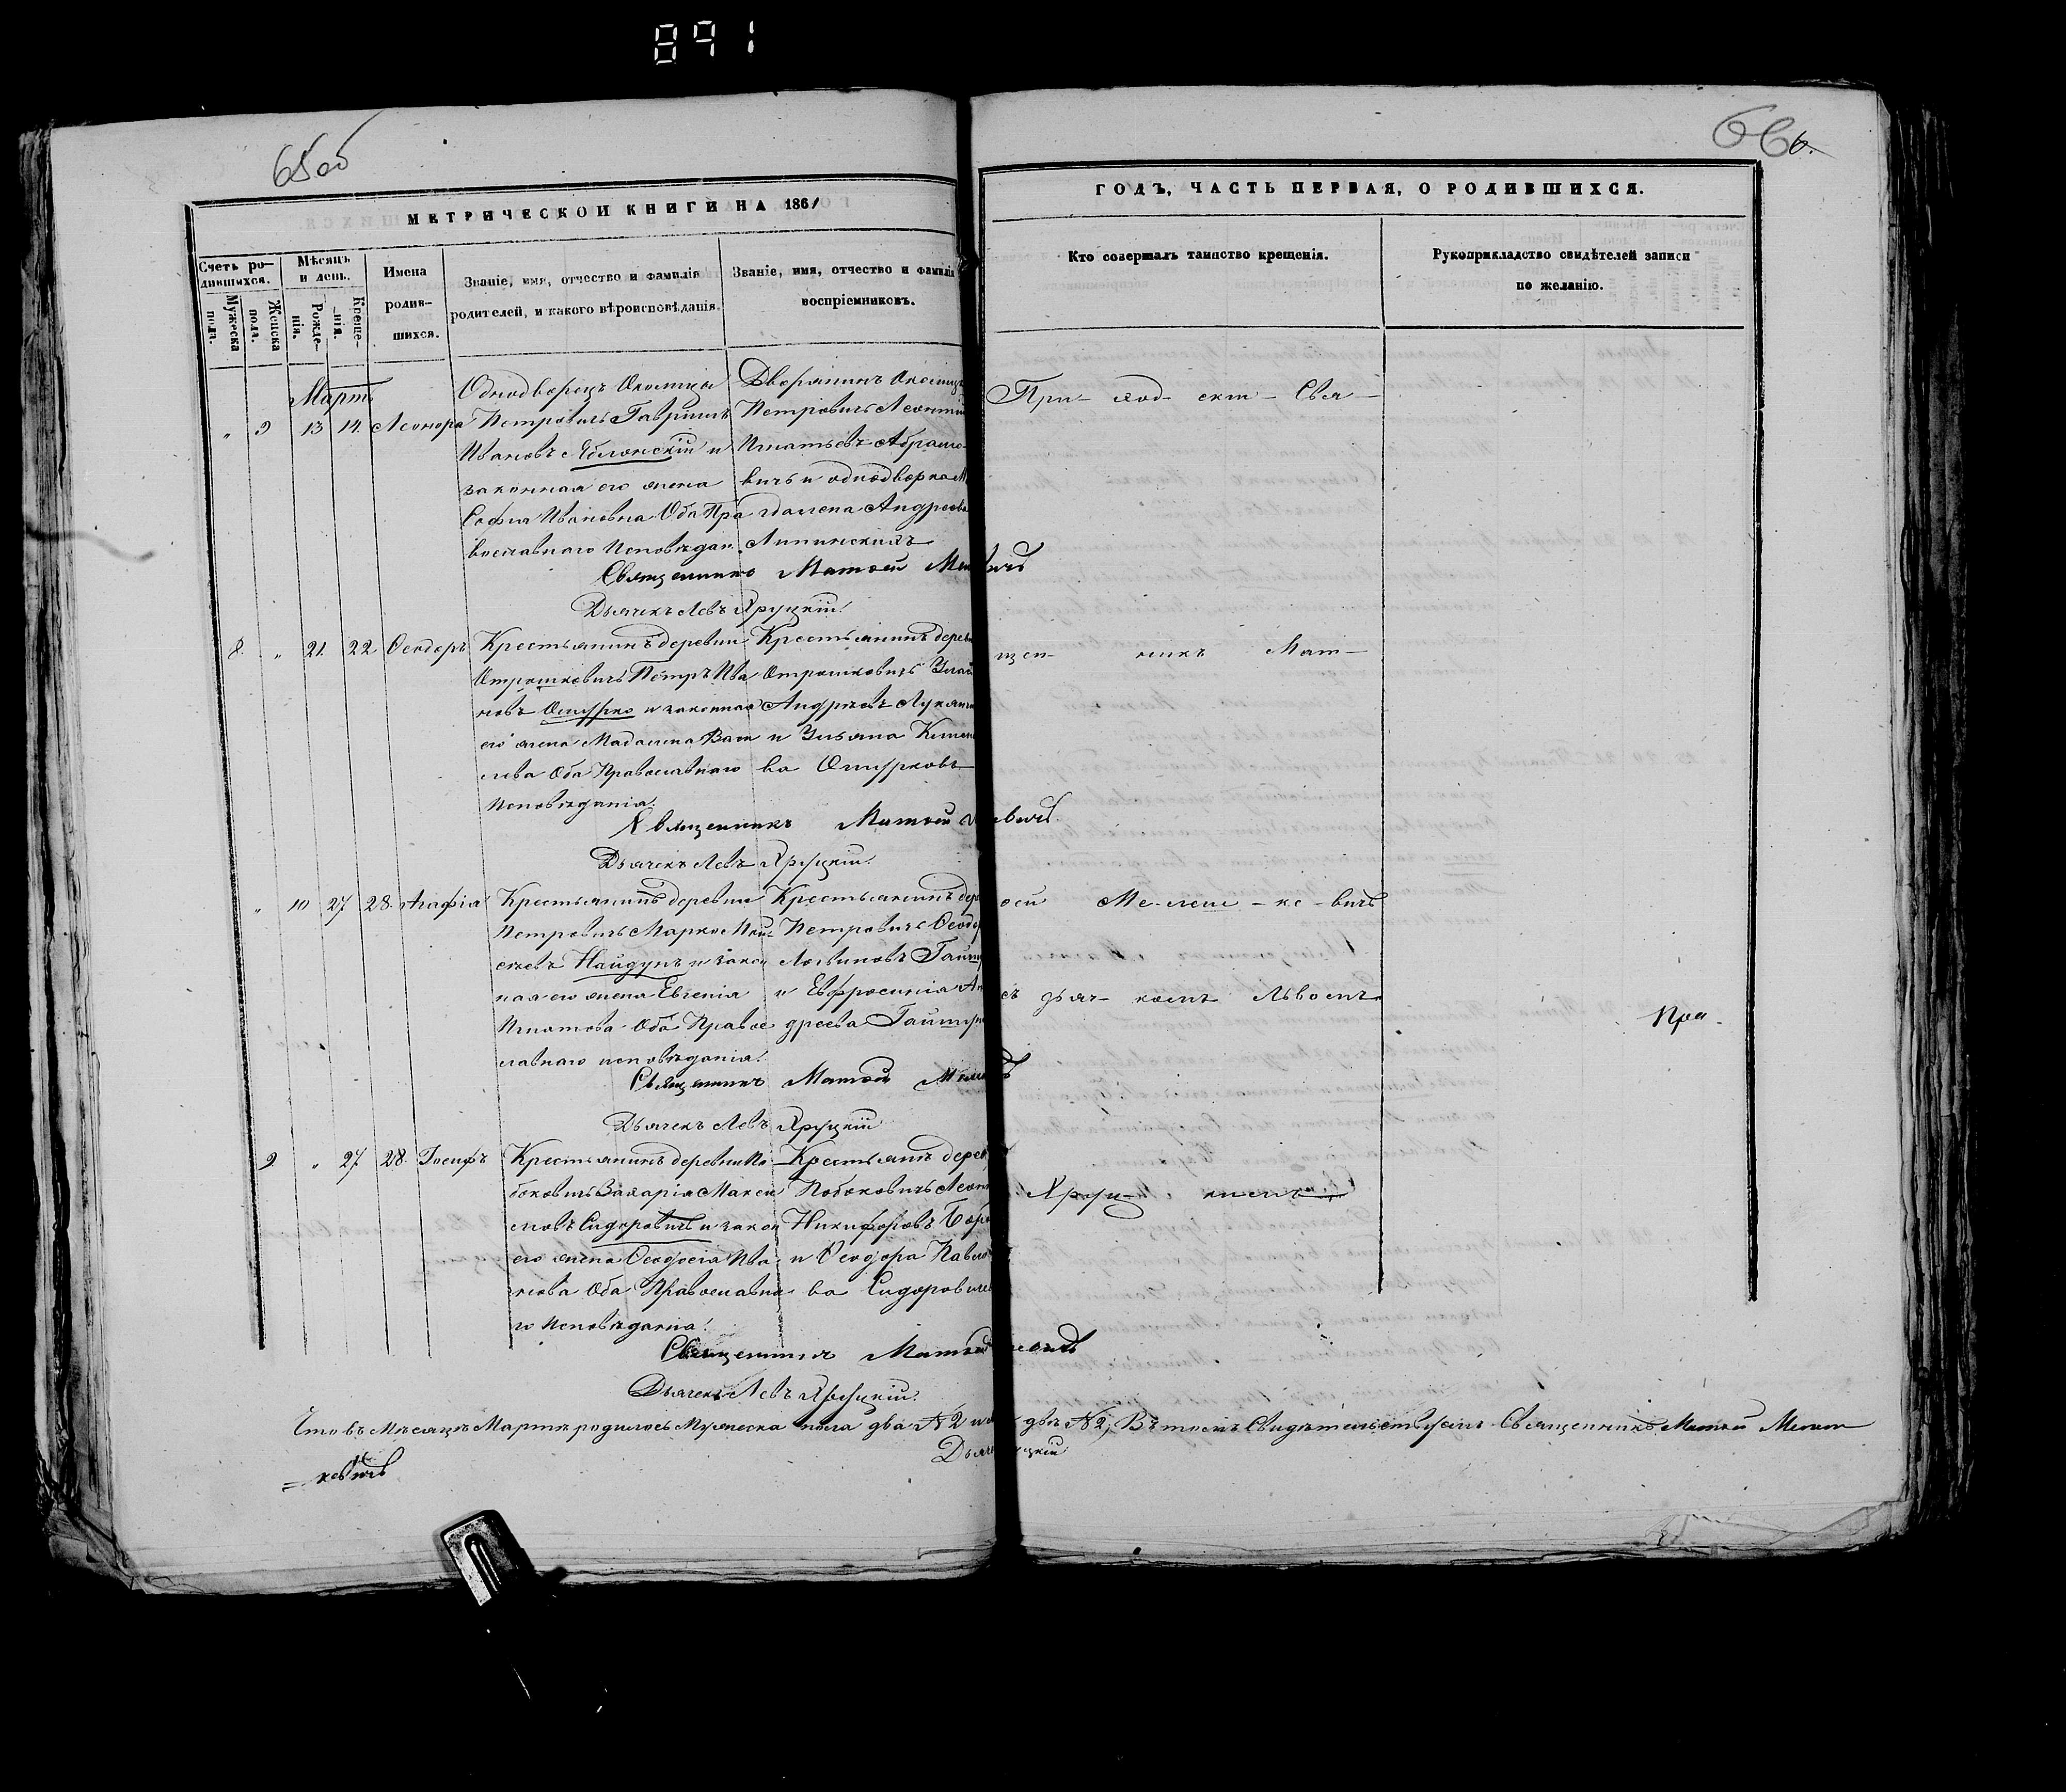 891
65об
66
6.
МЕТРИЧЕСКОЙ КНИГИ НА 1861
ГОДЪ, ЧАСТЬ ПЕРВАЯ, О РОДИВШИХСЯ.
Счетъ ро-
дившихся.
Мужеска
пола.
Женска
пола.
Мѣсяцъ
и день.
Рожде-
нія.
Креще-
нія.
Имена
родив-
шихся.
Званіе, имя, отчество и фамилія
родителей, и какого вѣроисповѣданія.
Званіе, имя, отчество и фамилія
воспріемниковъ.
Кто совершалъ таинство крещенія.
Рукоприкладство свидѣтелей записи
по желанію.
Мартъ
„ 9 13 14 Леонора
Однодворецъ Околицы
Петровичъ Гавріилъ
Ивановъ Яблонскій и
законная его жена
Софія Ивановна Оба Пра
вославнаго Исповѣдан.
Дворянинъ Околиц
Петровичъ Леонтій
Игнатьевъ Абрамо-
вичъ и однодворка М
гдалена Андреева
Липинскихъ
Священникъ Матѳей
Дьячекъ Левъ Хруцкій.
8 „ 21 22 Ѳеодоръ
Крестьянинъ деревни
Отрошковичъ Петръ Ива
новъ Ошурко и законная
его жена Мадалина Васи
лева Оба Православнаго
Исповѣданія.
Крестьянинъ дерев
Отрошковичъ
Андреевъ Лукян
и Ульяна Климо
ва Ошурковъ
Священникъ Матѳей
Дьячекъ Левъ Хруцкій.
„ 10 27 28 Агафія
Крестьянинъ деревни
Петровичъ Марко Мои-
сеевъ Найдунъ и закон
ная его жена Евгенія
Игнатова Оба Правос
лавнаго исповѣданія.
Крестьянинъ дер
Петровичъ Ѳеодо
Логвиновъ
и Евфросинія Ан
дреева
Священникъ Матѳей
Дьячекъ Левъ Хруцкій
9 „ 27 28 Іосифъ
Крестьянинъ деревни По
боковичъ Захарія Макси
мовъ Сидоровичъ и закон
его жена Ѳеодосія Ива
нова Оба Православна
го Исповѣданія.
Крестьянъ дерев
Побоковичъ Леон
Никифоровъ
и Ѳеодора Павло
ва Сидорович
Священникъ Матѳей
Дьячекъ Левъ Хруцкій.
При- ход- скій- Свя-
щен- никъ Мат-
ѳей Ме-леш-ке-вичъ
съ дьяч- комъ Львомъ
Хруц- кимъ
При-
Что въ Мѣсяцѣ Мартѣ родилось Мужеска пола два №2 двѣ №2, Въ томъ Свидѣтельствуемъ Священникъ Матѳей Мелеш
=кевичъ